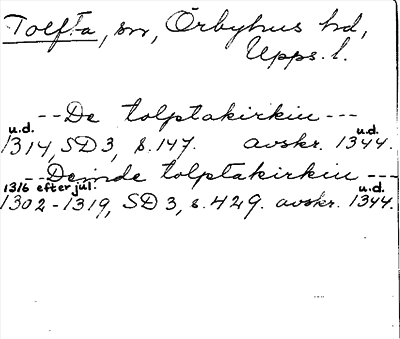 Tolfta, sn, Örbyhus hd,
Upps. l.
-- De tolptakirkiu ---
u.d. u.d.
1314, SD 3, s. 147. avskr. 1344.
-- Deinde tolptakirkiu ---
1316 efter jul. u.d.
1302-1319, SD 3, s. 429. avskr. 1344.